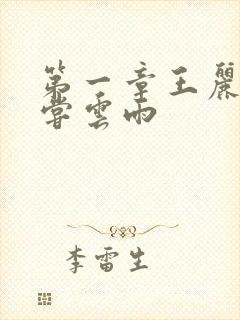 第一章王麗
嘗雲雨
李雷生